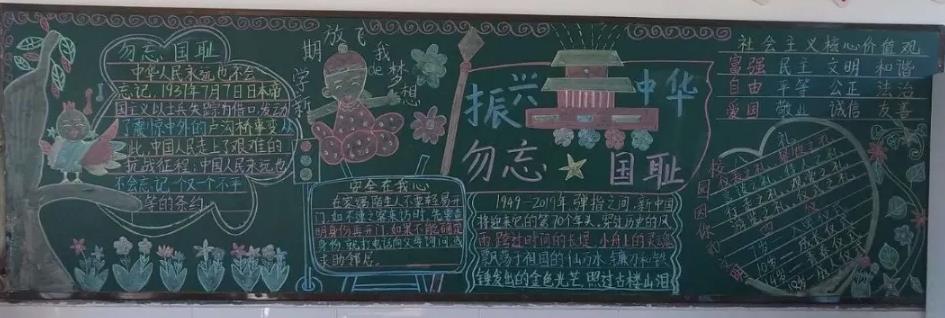 勿忘国耻
中华人民永远也不会
忘记,1937年7月7日日本帝
国主义以士兵失踪为借口发动
了震惊中外的卢沟桥事变从
此,中国人民走上了艰难的
抗战征程,中国人民永远也
不会忘记一个又一个不平
等的条约
放飞我
de梦想
新学期
安全在我心
在家遇陌生人不要轻易开
门,如不速之客来访时,先要查
明身份再开门,如果不能确定
身份就打电话向父母询问,或
求助邻居。
振兴中华
勿忘国耻
1949-2019年弹指之间,新中国
将迎来它的第70个年头,穿过历史的风
雨跨过时间的长堤,小舟上的灵魂
飘扬于祖国的山水,镰刀和铁
锤发出的金色光芒,照过古楼山泪
社会主义核心价值观
富强 民主 文明 和谐
自由 平等 公正 法治
爱国 敬业 诚信 友善
八礼
四仪